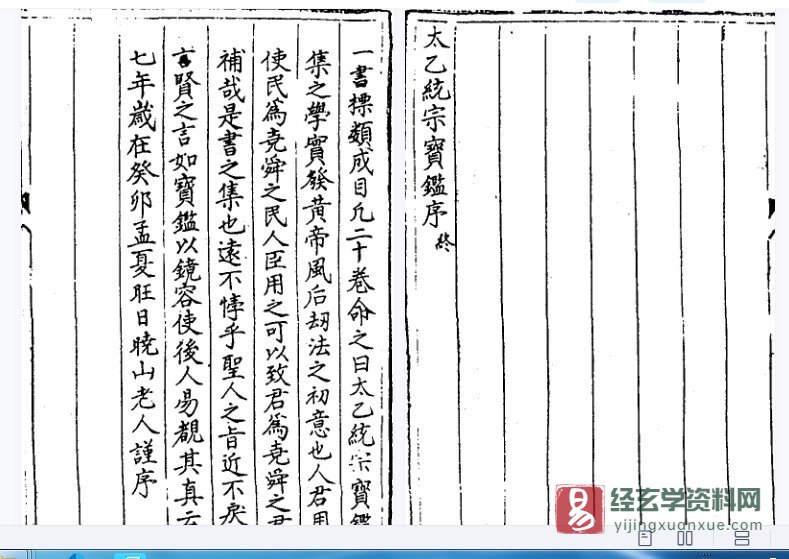 太乙統宗寶鑑序 終
一書摽類成目凢二十卷命之曰太乙統宗寶鑑
集之學實發黃帝風后刼法之初意也人君用
使民爲堯舜之民人臣用之可以致君爲堯舜之君
補哉是書之集也遠不悖乎聖人之旨近不戾
言賢之言如寶鑑以鏡容使後人易覩其真云
七年歲在癸卯孟夏旺日曉山老人謹序
易 经玄学资料网
yijingxuanxue.com